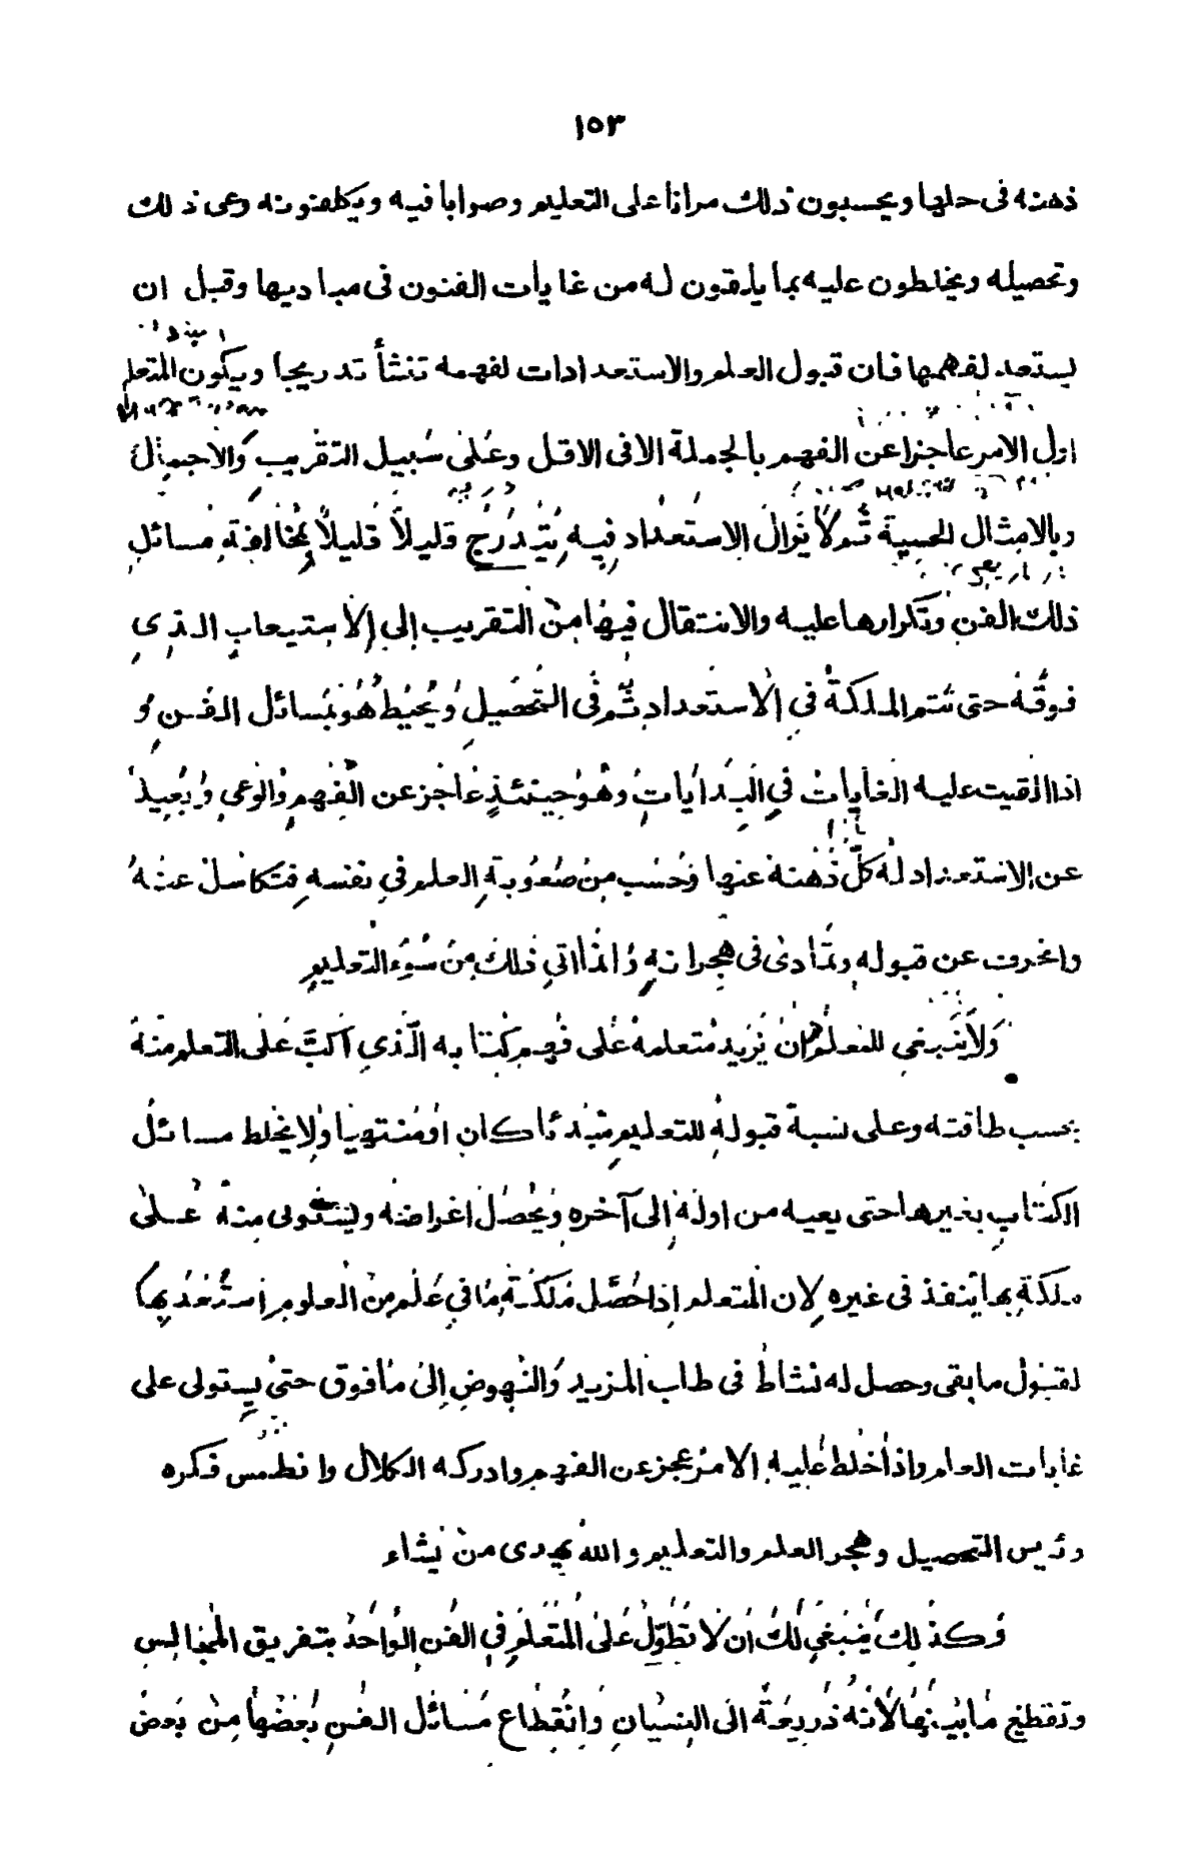 ١٥٣
ذهنه في حلها ويحسبون ذلك مرانا على التعليم وصوابا فيه ويكلفونه وعى ذلك
وتحصيله ويخلطون عليه بما يلقون له من غايات الفنون فى مباديها وقبل ان
يستعد لفهمها فان قبول العلم والاستعدادات لفهمه تنشأ تدريجا ويكون المتعلم
اول الامر عاجزا عن الفهم بالجملة الا فى الاقل وعلى سبيل التقريب والاجمال
وبالامثال الحسية ثم لا يزال الاستعداد فيه يتدرج قليلاً قليلاً بمخالفة مسائل
ذلك الفن وتكرارها عليه والانتقال فيها من التقريب إلى الاستيعاب الذى
فوقه حتى تتم الملكة في الاستعداد ثم في التحصيل ويحيط هو بمسائل الفن و
اذا القيت عليه الغايات في البدايات وهو حينئذٍ عاجز عن الفهم والوعي وبعيد
عن الاستعداد له كلّ ذهنه عنها وحسب من صعوبة العلم في نفسه فتكاسل عنه
وانحرف عن قبوله وتمادى فى هجرانه وانما اتى ذلك من سوء التعليم
ولا ينبغي للمعلم ان يزيد متعلمه على فهم كتابه الّذي اكبّ على التعلم منه
بحسب طاقته وعلى نسبة قبوله للتعليم مبتدئا كان او منتهيا ولا يخلط مسائل
الكتاب بغيرها حتى يعيه من اوله إلى آخره ويحصل اغراضه ويستولى منه على
ملكة بها ينفذ فى غيره لان المتعلم إذا حصّل ملكة ما في علم من العلوم استعد بها
لقبول ما بقى وحصل له نشاط فى طلب المزيد والنهوض إلى ما فوق حتى يستولى على
غايات العلم واذا خلط عليه الامر عجز عن الفهم وادركه الكلال وانطمس فكره
ويئس التحصيل وهجر العلم والتعليم والله يهدى من يشاء
وكذلك ينبغي لك ان لا تطوّل على المتعلم في الفن الواحد بتفريق المجالس
وتقطيع ما بينها لانه ذريعة الى النسيان وانقطاع مسائل الفن بعضها من بعض